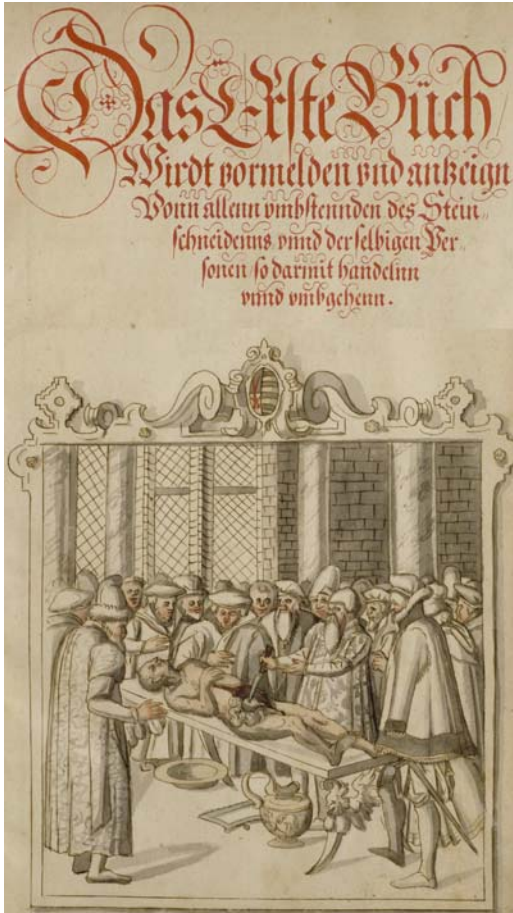 Das Erste Büch
Wirdt vormelden vnd antzeign
Vonn allenn vmbstennden des Stein„
schneidenns vnnd der selbigen Per„
sonen so darmit handelnn
vnnd vmbgehenn.